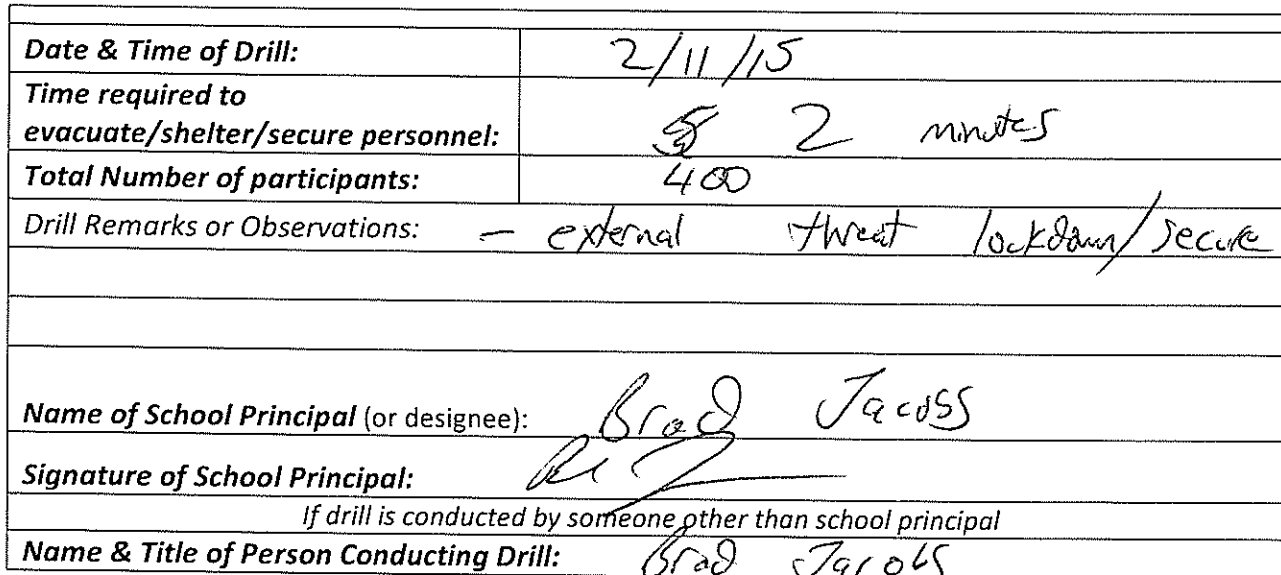 Date & Time of Drill: 2/11/15
Time required to
evacuate/shelter/secure personnel: 2 minutes
Total Number of participants: 400
Drill Remarks or Observations: - external threat lockdown/secure
Name of School Principal (or designee): Brad Jacobs
Signature of School Principal:
If drill is conducted by someone other than school principal
Name & Title of Person Conducting Drill: Brad Jacobs